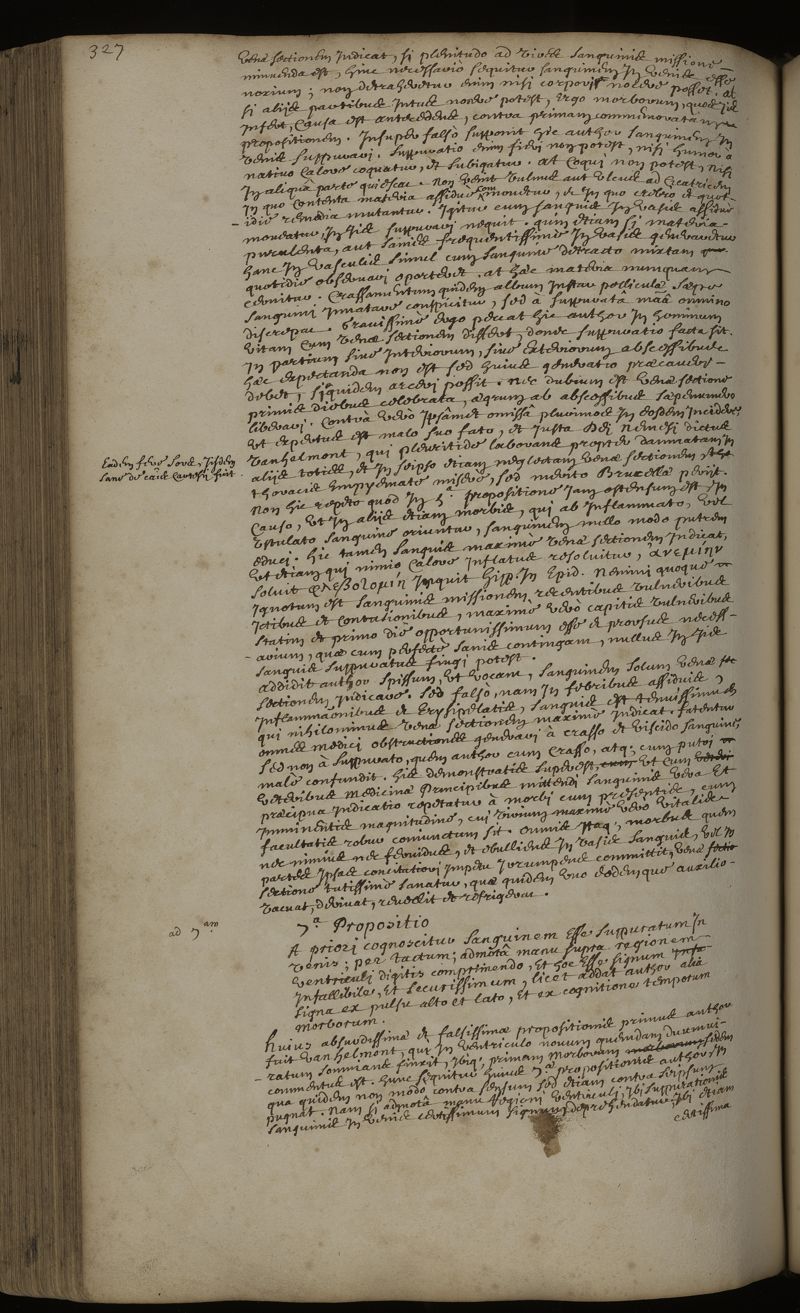 327
Venæ sectionem Indicat, si plenitudo ad vivas sanguinis missione
minuenda est, hinc necessario sequitur sanguinem In venis esse
noxium; non detraheretur enim nisi corpori nocere posset. at
si aliis partibus Intus nocere potest, Ergo morborum, quos Ipse
Infert, causa est antecedens, contra primam communicatam
propositionem. Insuper falso supponit hic author sanguinem In
venis suppurari. suppuratio enim fieri non potest, nisi humor a
nativo calore coquatur, et subigatur. at coqui non potest, nisi
In aliqua parte quiescat. Non venit vulnus aut ulcus ad cicatricem
In quo contenta materia assiduè commovetur, & In quo cælero et quot-
- idie remedia mutantur. Igitur cum sanguis In vasis assiduè
moveatur, In Iis suppurari nequit. quin etiam si materia
purulenta, aut sanies frequentissimè In vasis generaretur
hanc In vasculis simul cum sanguine detracto mixtam
quotidie observari oporteret. at hæc materia nunquam
cernitur. Crassamentum quidem album Instar pelliculæ sæpe
sanguini Innatare conspicitur, sed à suppurata materia omnino
discrepat. Gravissimè ergo peccat hic author In hominum
vitam cum venæ sectionem differt, donec suppuratio facta sit.
In partium sive Interiorum, sive exteriorum abscessibus
hæc expectanda non est sed huius generatio præcaveri
debet, siquidem arceri possit. nec dubium est venæ sectione
primis diebus celebrata, ægrum ab abscessibus sæpenumero
liberari. Contrà verò Ipsâmet omissâ plurimos In eosdem Incidere,
ut expertus est malo suo fato, et Iusta Dei nemesi dictus
Vanhelmont, qui pleuritide laborans propter damnatam In
Eadem ferè sorte, Iisdem
sane de causis Cartesii fuit.
aliis toties, et In seipso etiam neglectam venæ sectionem,
thoracis Empyemate miserè, sed merito Bruxellis periit.
Non hic repeto quod In 4ª propositione Iam ostensum est, In
Causo, ut In aliis etiam morbis, qui ab Inflammato, vel
Ustulato sanguine oriuntur, sanguinem nullo modo putrem
educi. hic tamen sanguis maximè venæ sectionem Indicat,
ut etiam qui nimio calore Inflatus resoluitur,
soluit Inquit Hipp. In Epid. Nemini quoque
Ignotum est sanguinis missionem recentibus vulneribus
Ictibus et contusionibus, maximè verò capitis vulneribus
statim et primo die opportunissimum esse et prorsus necess-
- arium, quæ cum perfectè sanis contingant, nullus In Iis
sanguis suppuratus fingi potest.
addidit author spissum, ut vocant, sanguinem solum venæ
sectionem Indicare. sed falso, nam In febribus assiduis,
Inflammationibus et Erysipelatis, sanguis est tenuissimus
qui nihilominus venæ sectionem maximè Indicat. fatentur
omnes medici obstructiones generari à crasso et viscido sanguine,
sed non à suppurato, quem author cum crasso, atq; cum putri
malè confundit. His demonstratis superest, ut cum
veteribus Medicinæ Principibus mittendi sanguinis vera et
præcipua Indicatio repetatur à morbi cum præsentis, cum
Imminentis magnitudine, cui virium maximè verò vitalis
facultatis robur coniunctum sit. omnis Itaq; morbus quem
nec nimius nec fervidus, et ebulliens In vasis sanguis, vel In
partes Ipsas concitatiori Impetu Irrumpens committit, venæ
sectione tutissimè sanatur, quæ quidem uno eodemque auxilio
vacuat, derivat, revellit et refrigerat.
7ª Propositio
ad 7am
A priori cognoscitur sanguinem esse suppuratum In
venis; per tactum; admotâ manu supra regionem
ventriculi digitis comprimendo, et hoc esse signum
Infallibile, et securissimum, licet addat author alia
signa ex pulsu alto et lato, et ex cognitione temporum
morborum.
Huius absurdissimæ et falsissimæ propositionis primus author
fuit Vanhelmont, qui In ventriculo novum quendam duumvi-
- ratum somnians finxit, Ibiq; primam morborum sedem
commentus est. hunc sequitur huius 7ª propositionis author In
qua quidem non modo contra sensum sed etiam contra seipsum
pugnat. Nam si admotâ manu regioni ventriculi, Ibi suppurationis
sanguinis In venis certissimum signum deprehendatur, Ibi etiam
certissima